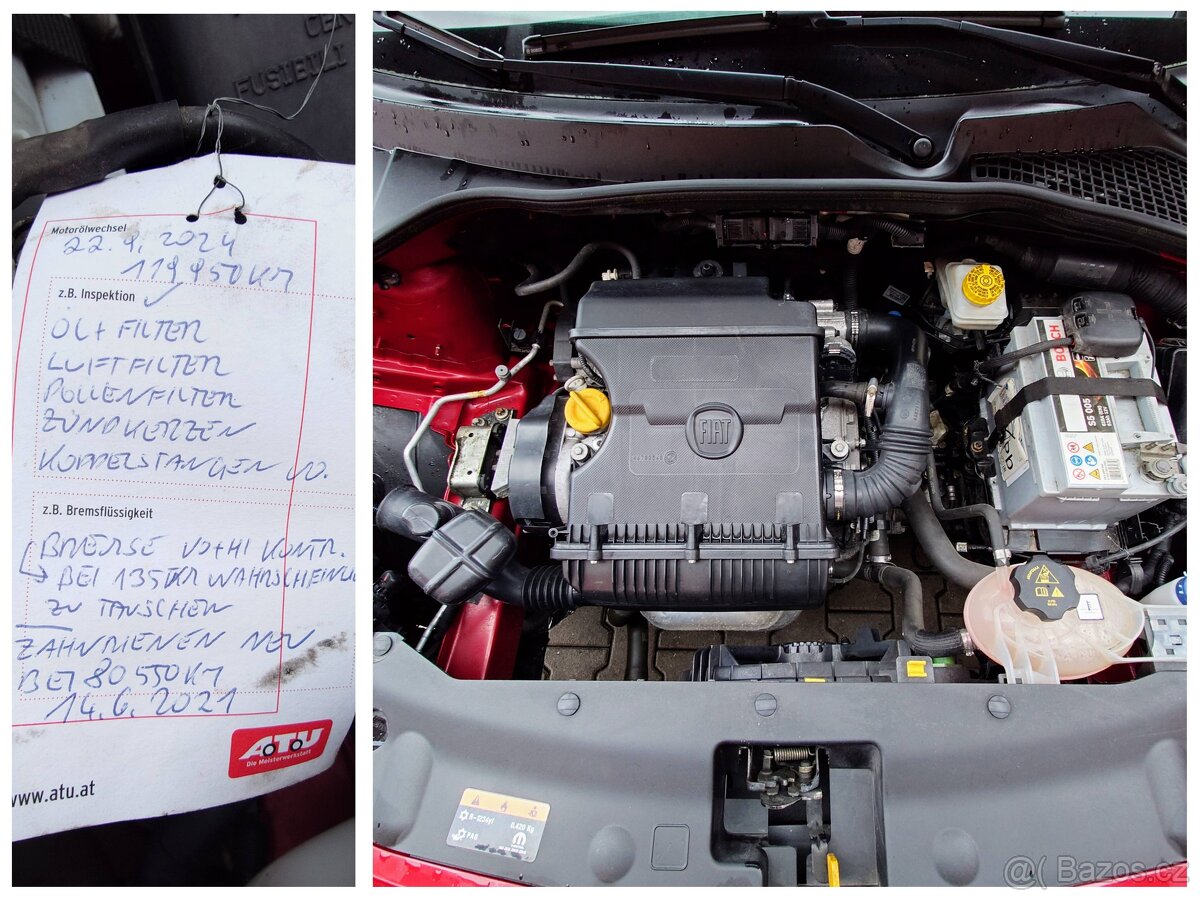 CEN
FUSIBILI
Motorölwechsel
22.9.2024
119950KM
z.B. Inspektion
ÖL+FILTER
LUFTFILTER
POLLENFILTER
ZÜNDKERZEN
KOPPELSTANGEN VO.
z.B. Bremsflüssigkeit
BREMSE VO+HI KONTR.
BEI 135TKM WAHRSCHEINLI
ZU TAUSCHEN
ZAHNRIEMEN NEU
BEI 80550KM
14.6.2021
ATU
Die Meisterwerkstatt
www.atu.at
FIAT
BOSCH
S5 005
R-1234yf
0,420 Kg
PAG
@( Bazos.cz